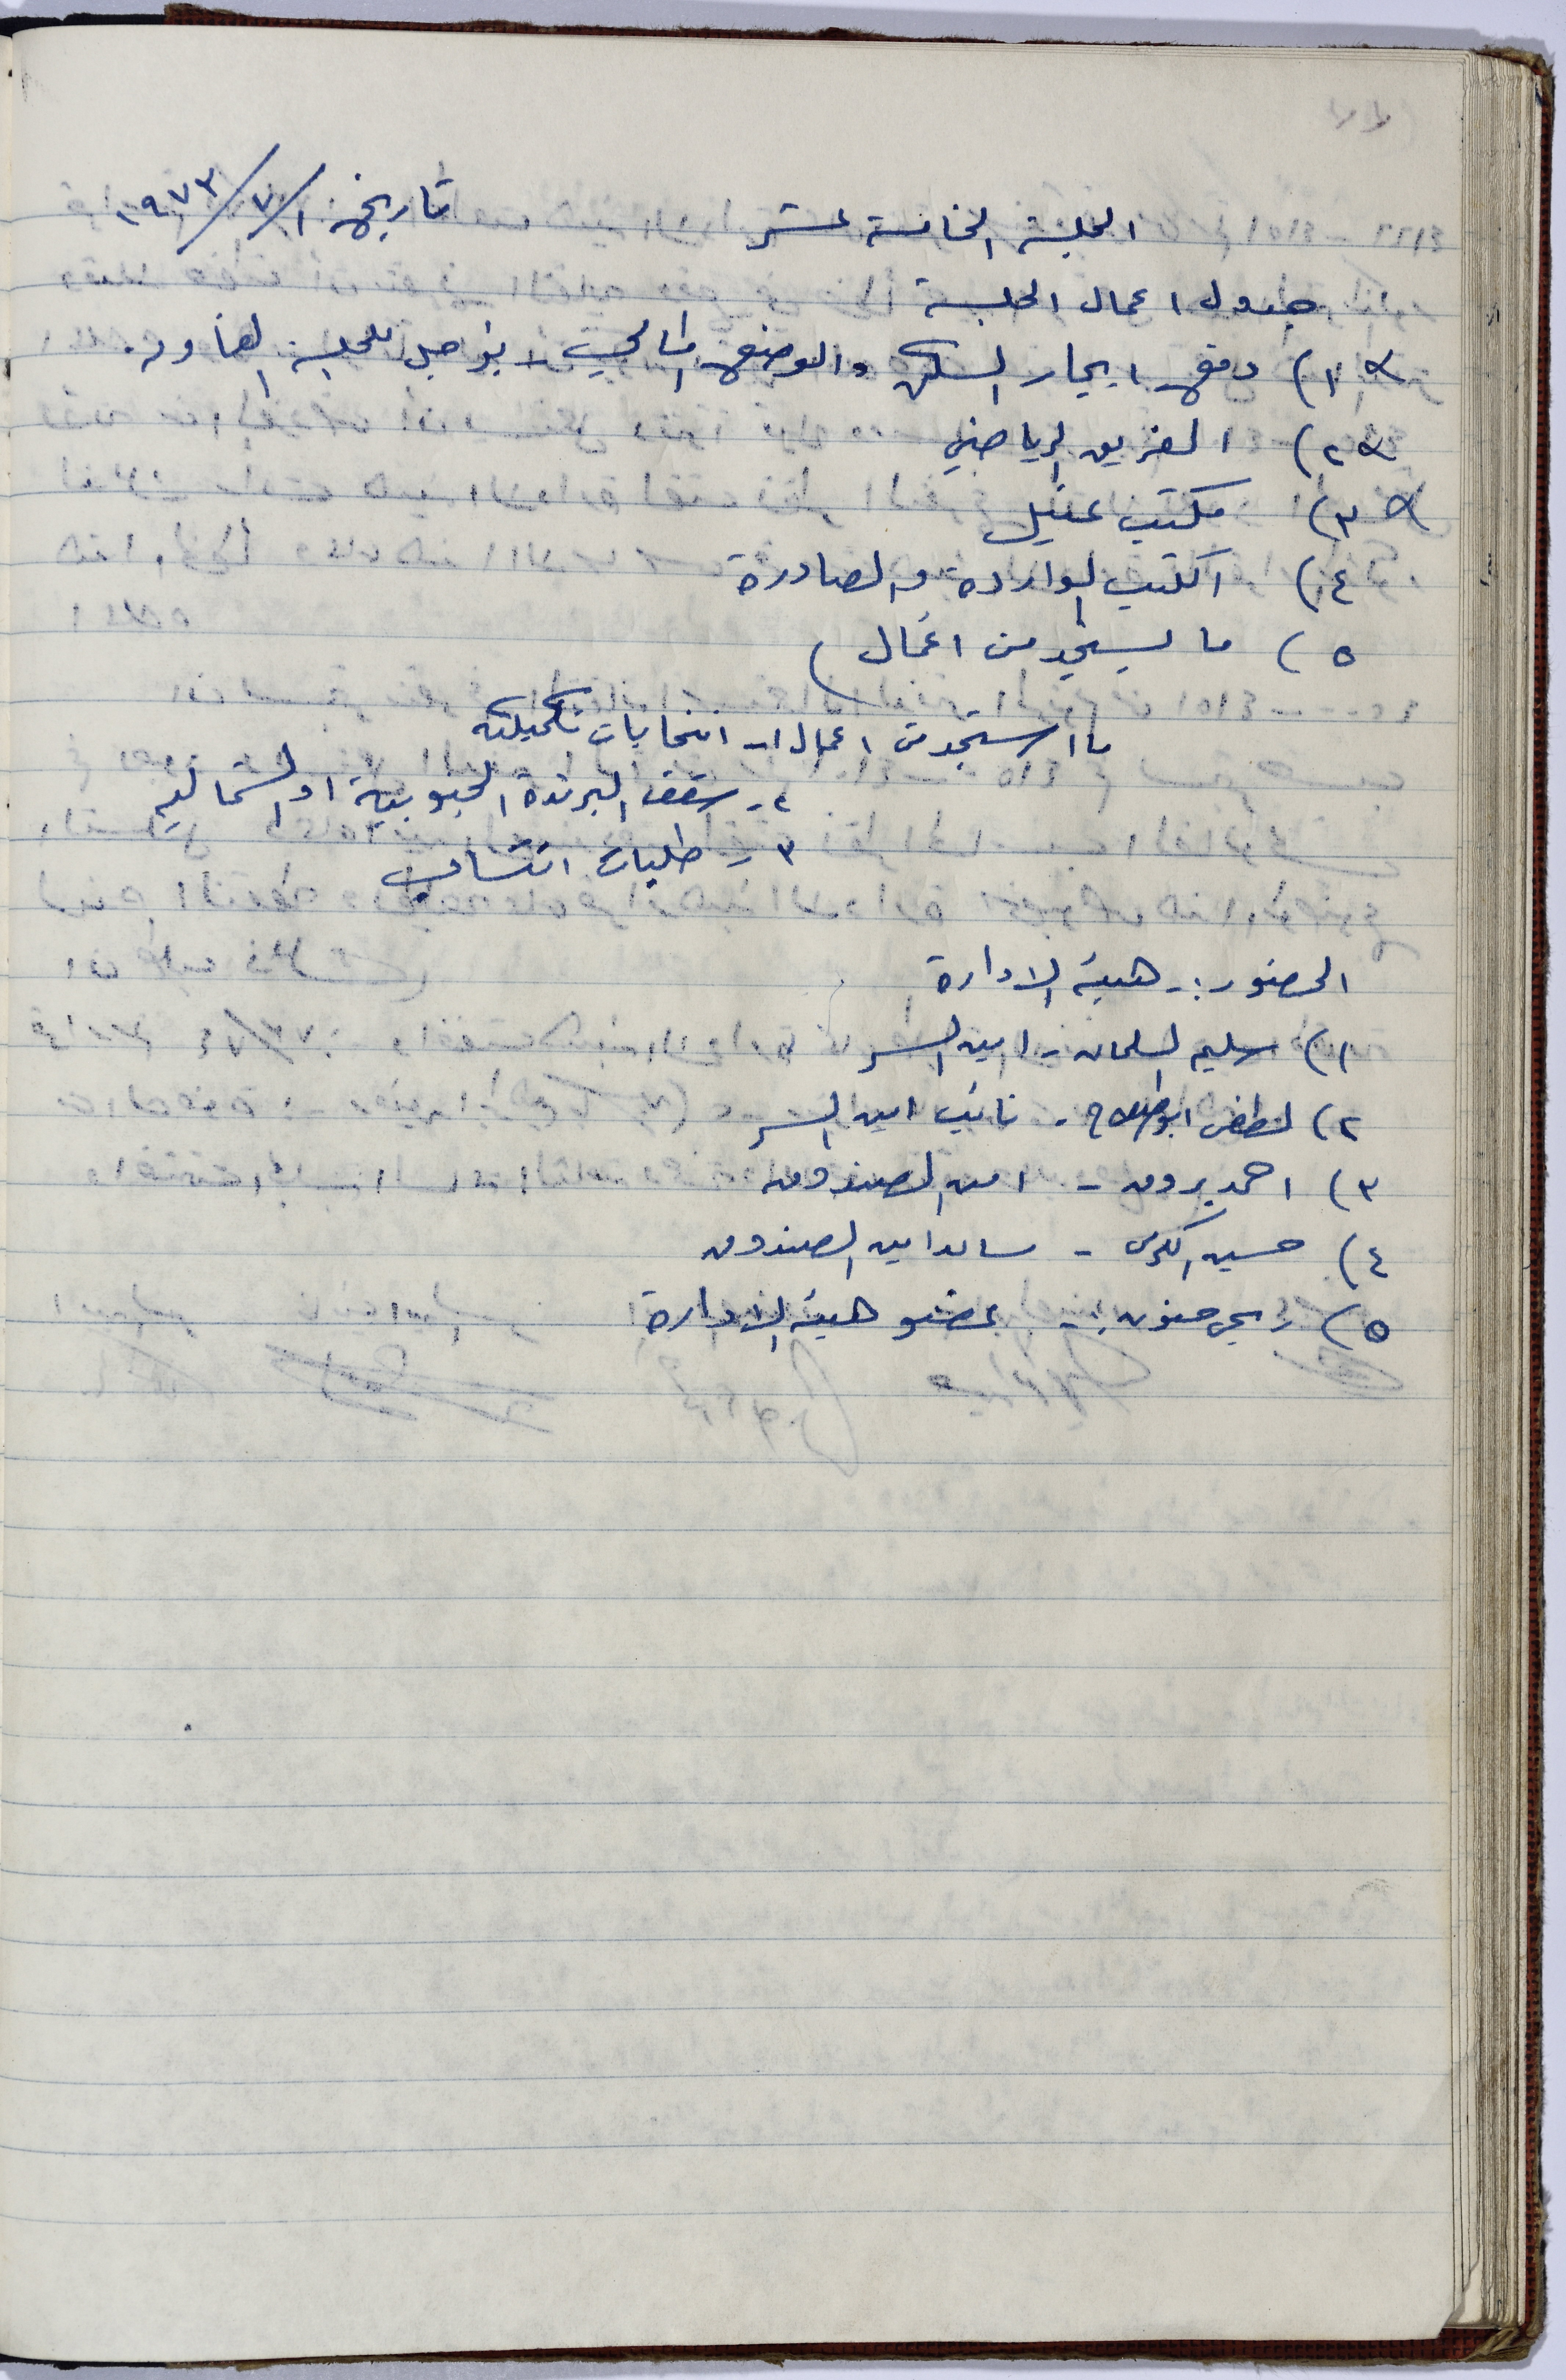 الجلسة الخامسة عشر تاريخ ١/٧/١٩٧٣
جدول اعمال الجلسة
١) دفع ايجار السكن والوضع المالي - يؤجل للجلسة القادمة.
٢) الفريق الرياضي
٣) مكتب عقيل
٤) الكتب الواردة والصادرة
٥) ما يستجد من اعمال)
ما استجد من اعمال ١- انتخابات تكميلية
٢- سقف البرندة الجنوبية او الشمالية
٣- طلبات انتساب
الحضور:- هيئة الادارة
١) سليم السلمان - امين السر
٢) لطفي ابو - نائب امين السر
٣) احمد - امين الصندوق
٤) حسين - امين الصندوق
٥) :- عضو هيئة الادارة